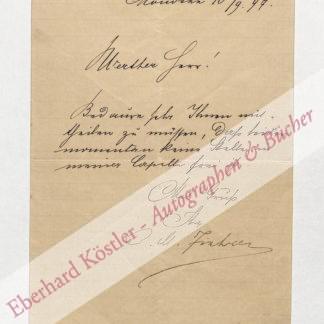 München 10/9. 99.
Werther Herr!
Bedaure sehr Ihnen mit-
theilen zu müssen, daß
momentan keine Stelle
meiner Capelle frei
Mit Gruß
Eberhard Köstler - Autographen & Bücher